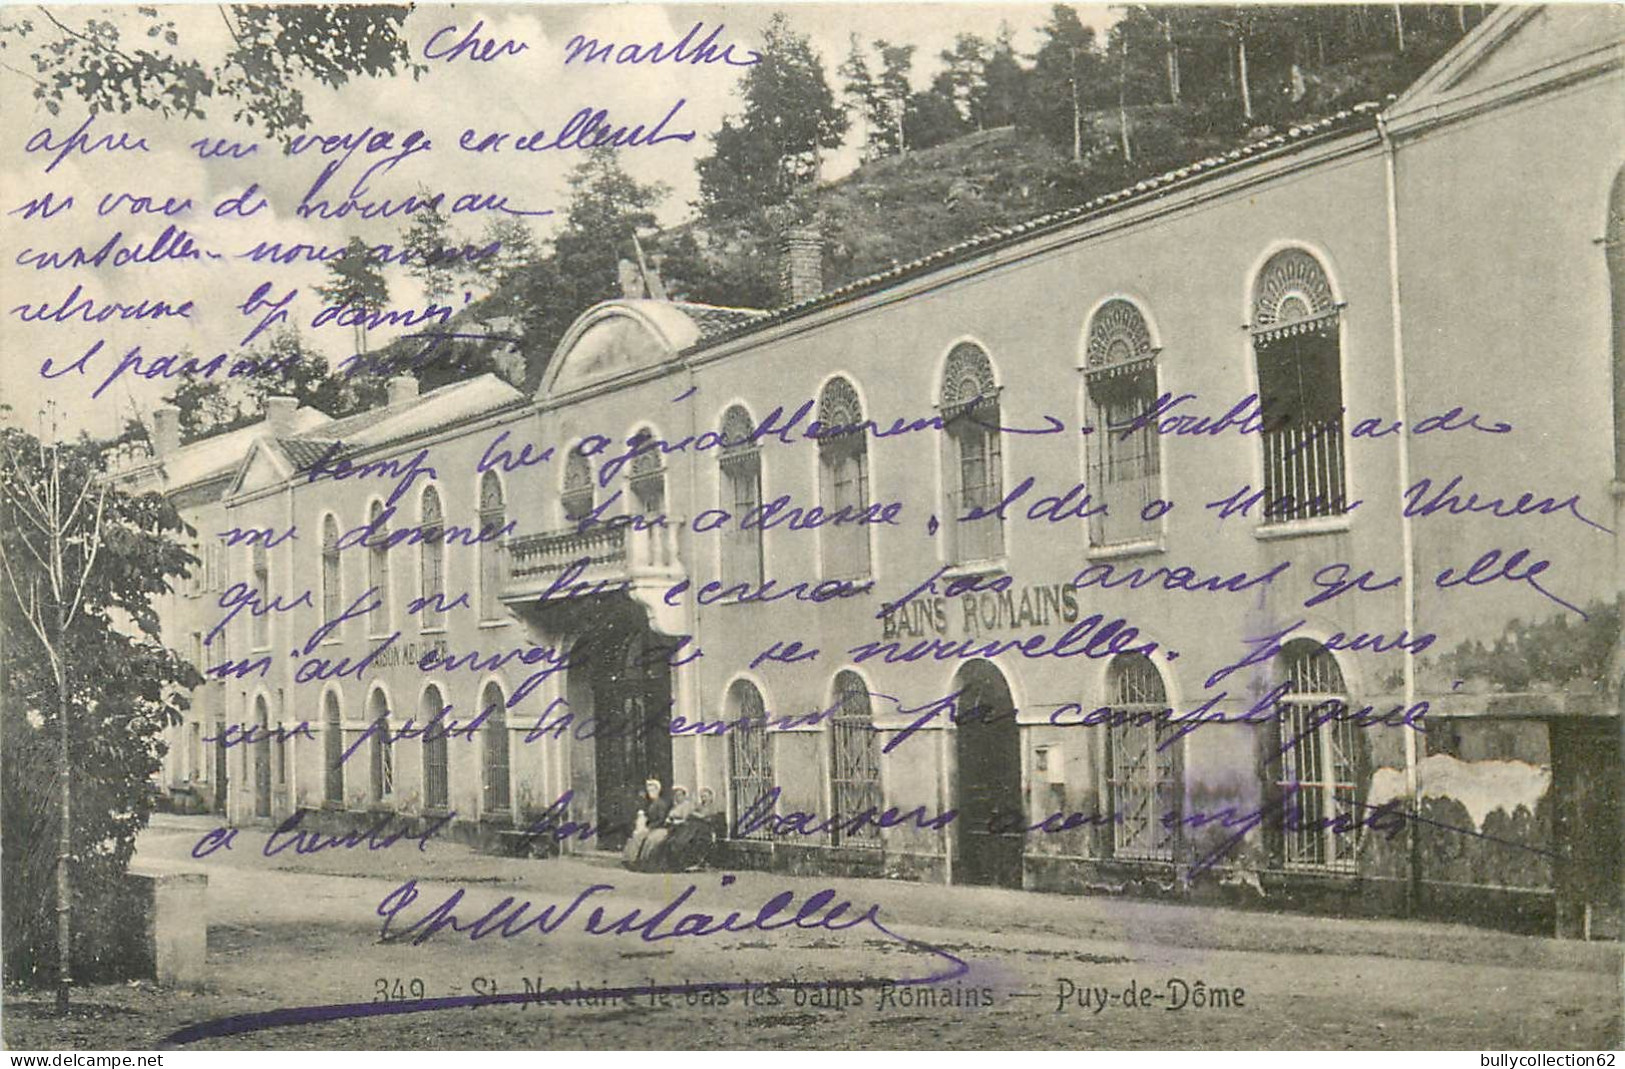 Cher Marthe
après un voyage excellent
me voici de nouveau
installer. nous avons
retrouvé les dames
et passons notre
temps très agréablement. N'oublie pas de
me donner ton adresse, et dis à Mari Therese
que je ne lui écrirai pas avant qu'elle
m'ait envoyé de ses nouvelles. Je suis
un petit traitement pas compliqué
a bientot bons baisers aux enfants
MAISON MEUBLÉE
BAINS ROMAINS
349. - St. Nectaire le bas les bains Romains — Puy-de-Dôme
bullycollection62